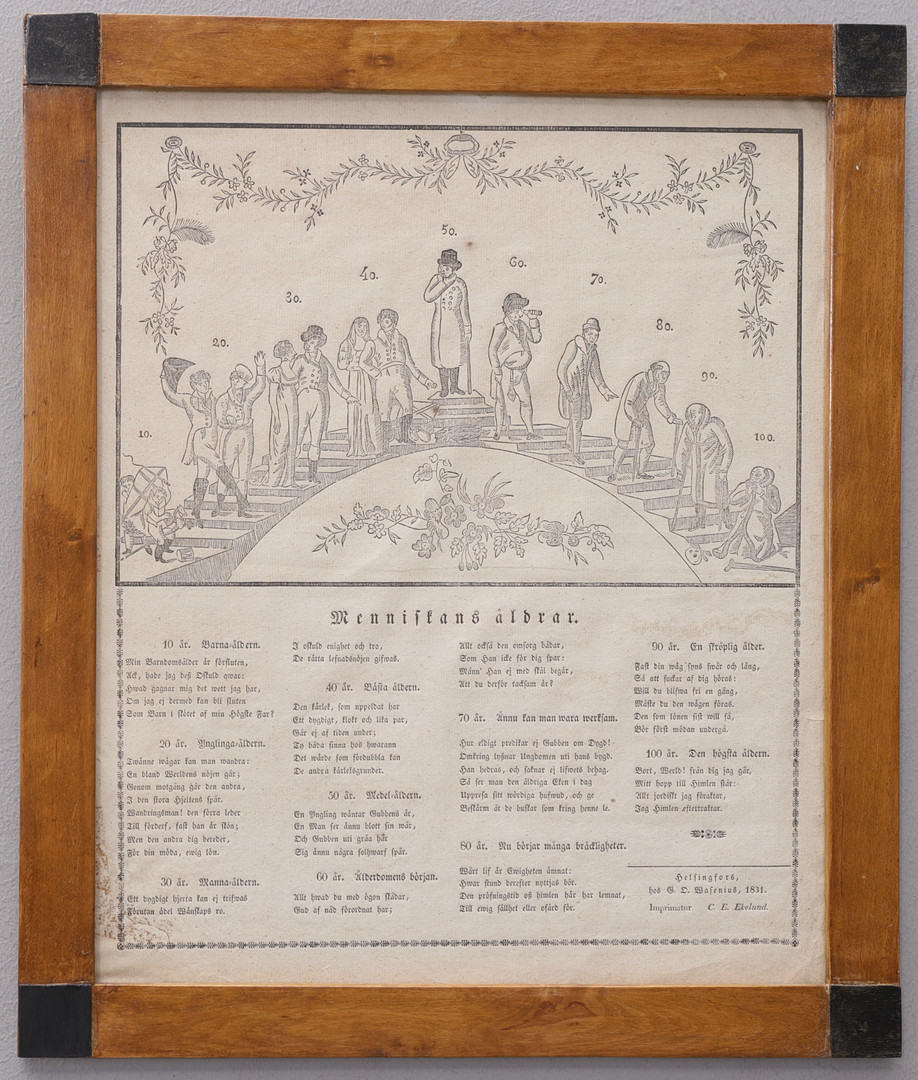 10.
20.
30.
40.
50.
60.
70.
80.
90.
100.
Menniskans åldrar.
10 år. Barna-åldern.
Min Barndomsålder är försluten,
Ack, hade jag deß Oskuld qwar:
Hwad gagnar mig det wett jag har,
Om jag ej dermed kan bli sluten
Som Barn i skötet af min Högste Far?
20 år. Ynglinga-åldern.
Twänne wägar kan man wandra:
En bland Werldens nöjen går;
Genom motgång går den andra,
I den stora Hjeltens spår.
Wandringsman! den förra leder
Till förderf, fast han är skön;
Men den andra dig bereder,
För din möda, ewig lön.
30 år. Manna-åldern.
Ett dygdigt hjerta kan ej trifwas
Förutan ädel Wänskaps ro.
I oskuld enighet och tro,
De rätta lefnadsnöjen gifwas.
40 år. Bästa åldern.
Den kärlek, som uppeldat har
Ett dygdigt, klokt och lika par,
Går ej af tiden under;
Ty båda finna hos hwarann
Det wärde som fördubbla kan
De andra kärleksgrunder.
50 år. Medel-åldern.
En Yngling wäntar Gubbens år,
En Man ser ännu blott sin wår,
Och Gubben uti gråa hår
Sig ännu några solhwarf spår.
60 år. Älderdomens början.
Allt hwad du med ögon skådar,
Gud af nåd förordnat har;
Allt också den omsorg bådar,
Som Han icke för dig spar:
Männ' Han ej med skäl begär,
Att du derför tacksam är?
70 år. Ännu kan man wara werksam.
Hur eldigt predikar ej Gubben om Dygd!
Omkring lyßnar Ungdomen uti hans bygd.
Han hedras, och saknar ej lifwets behag.
Så ser man den åldriga Eken i dag
Uppresa sitt wördiga hufwud, och ge
Beskärm åt de buskar som kring henne le.
80 år. Nu börjar många bräckligheter.
Wårt lif är Ewigheten ämnat:
Hwar stund derefter nyttjas bör.
Den pröfningstid oß himlen här har lemnat,
Till ewig sällhet eller ofärd för.
90 år. En skröplig ålder.
Fast din wäg syns swår och lång,
Så att suckar af dig höras:
Will du blifwa fri en gång,
Måste du den wägen föras.
Den som lönen sist will få,
Bör först mödan undergå.
100 år. Den högsta åldern.
Bort, Werld! från dig jag går,
Mitt hopp till Himlen står:
Allt jordiskt jag föraktar,
Jag Himlen eftertraktar.
Helsingfors,
hos G. O. Wasenius, 1831.
Imprimatur. C. E. Ekelund.